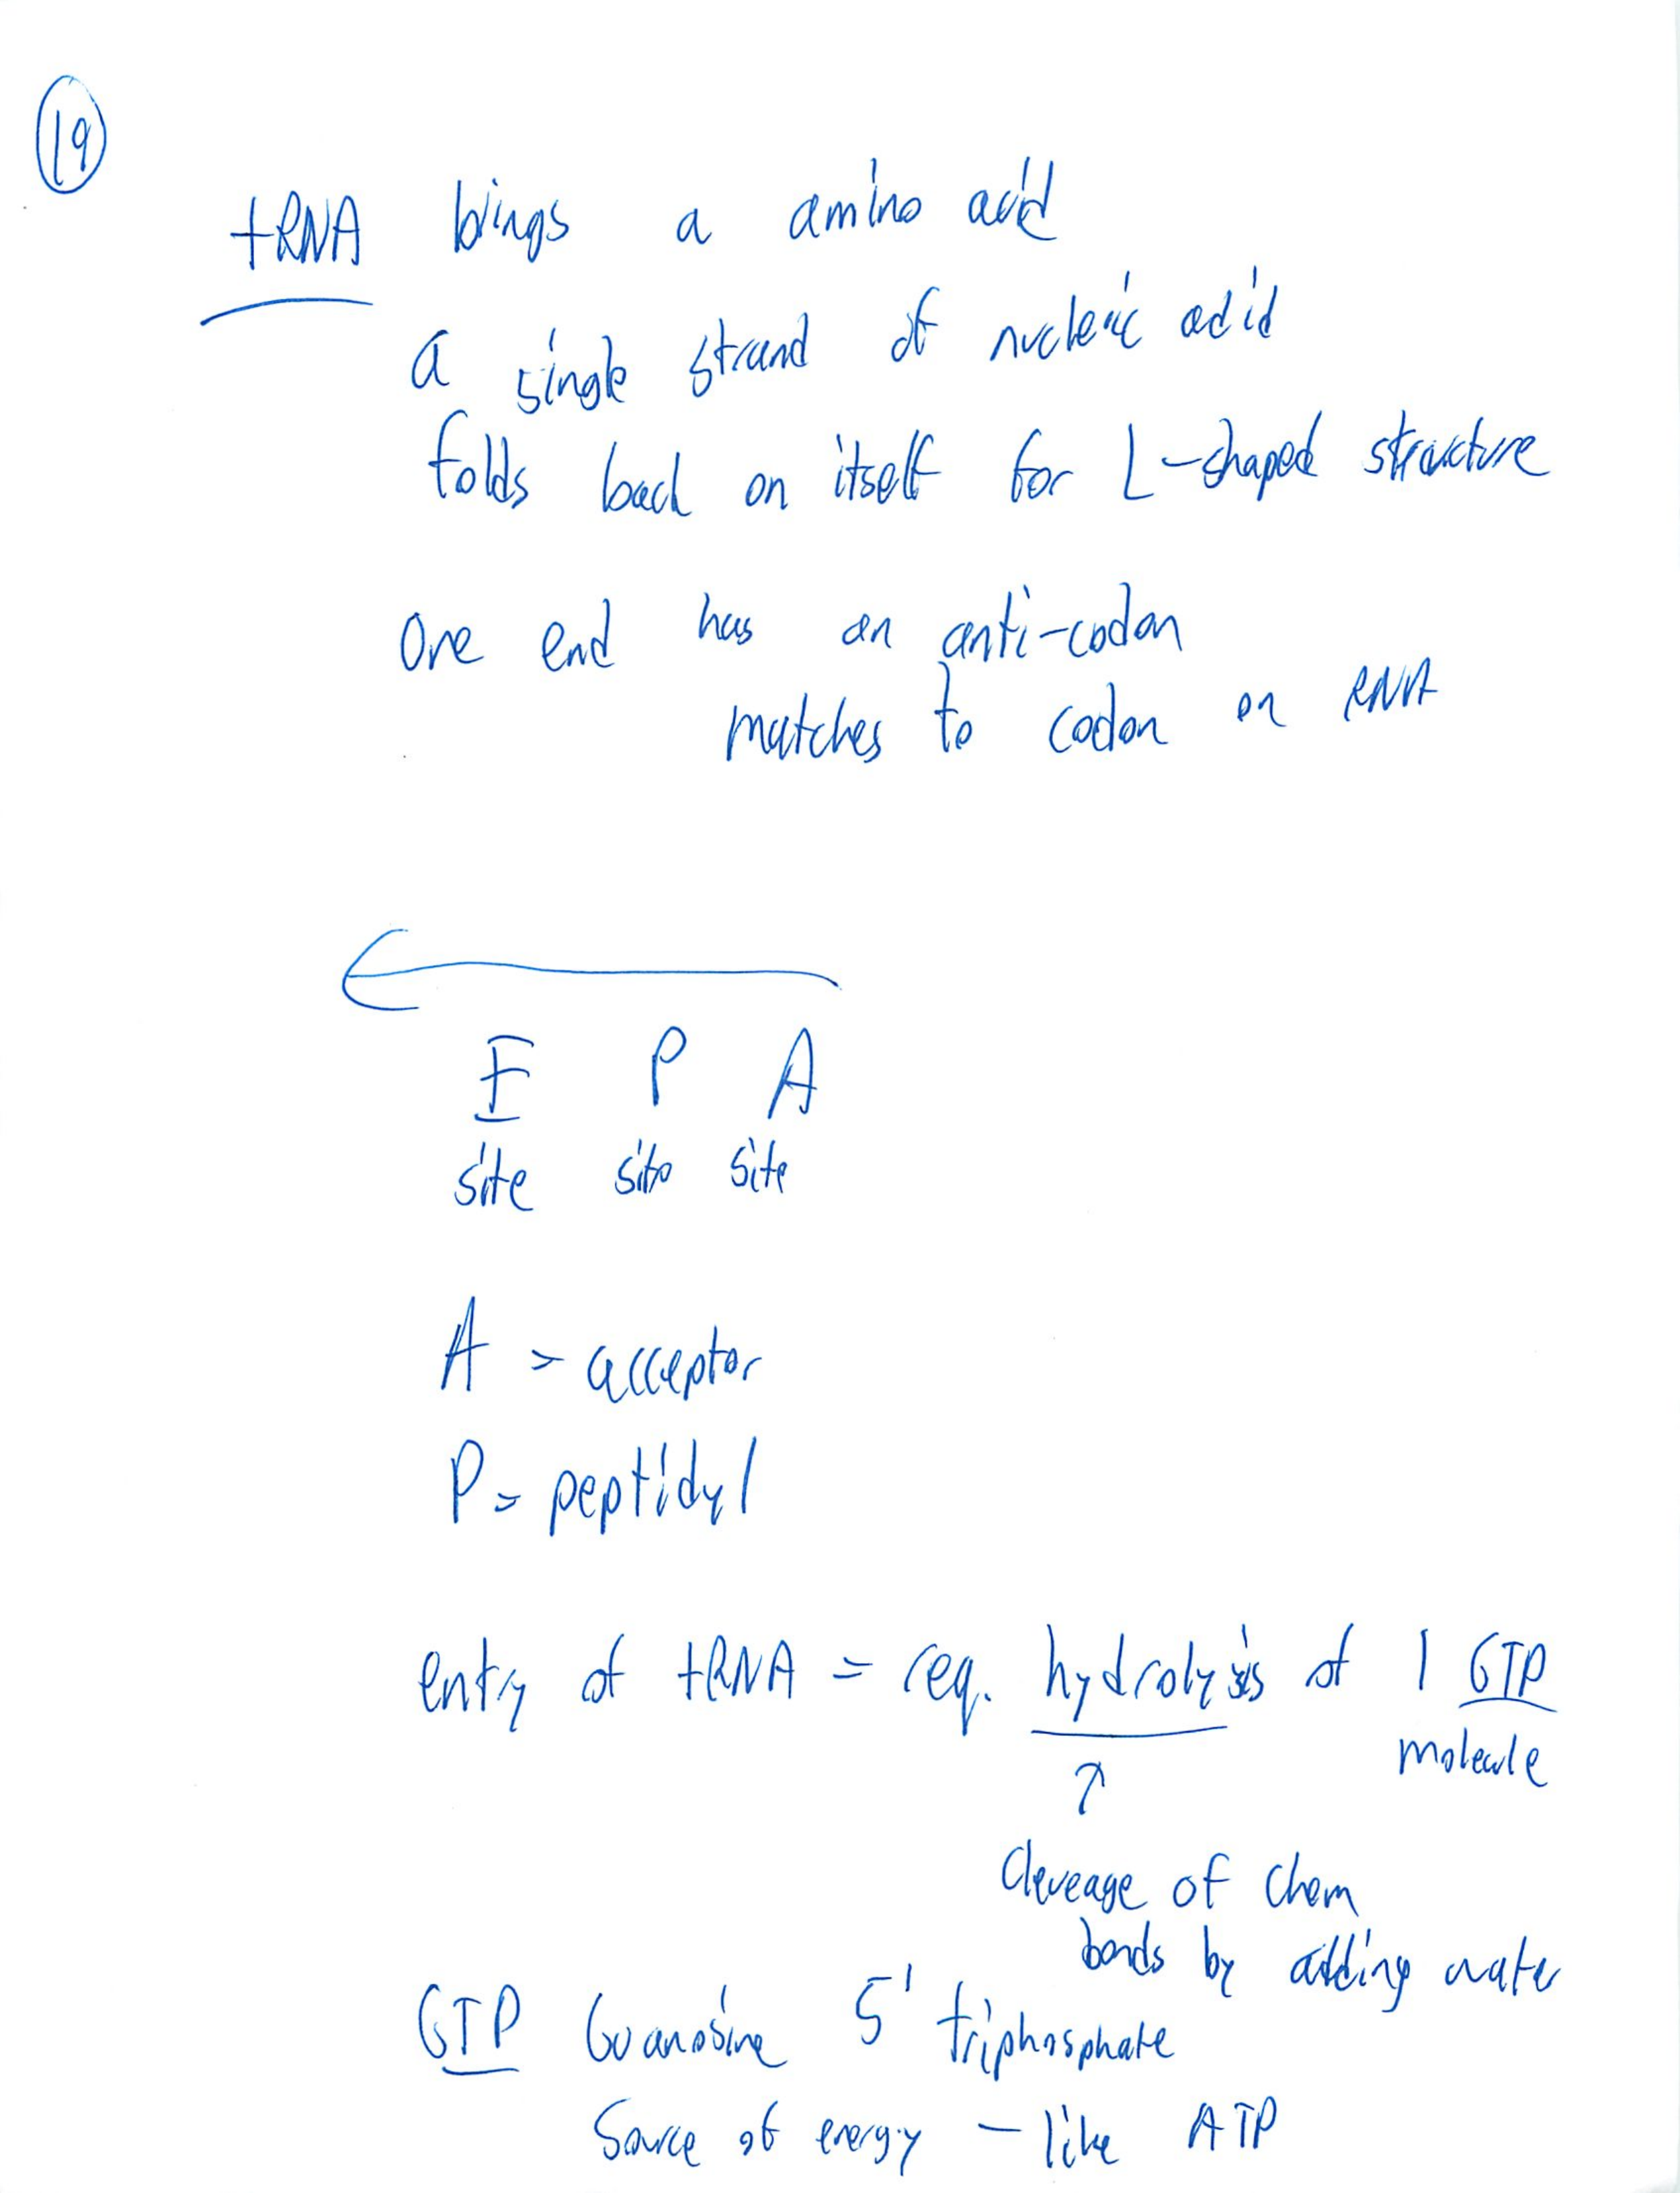 19
tRNA brings a amino acid
a single strand of nucleic acid
folds back on itself for L-shaped structure
One end has an anti-codon
matches to codon on RNA
E P A
site site site
A = acceptor
P = peptidyl
entry of tRNA = req. hydrolysis of 1 GTP
molecule
↑
Cleveage of Chem
bonds by adding water
GTP Guanosine 5' triphosphate
Source of energy - like ATP